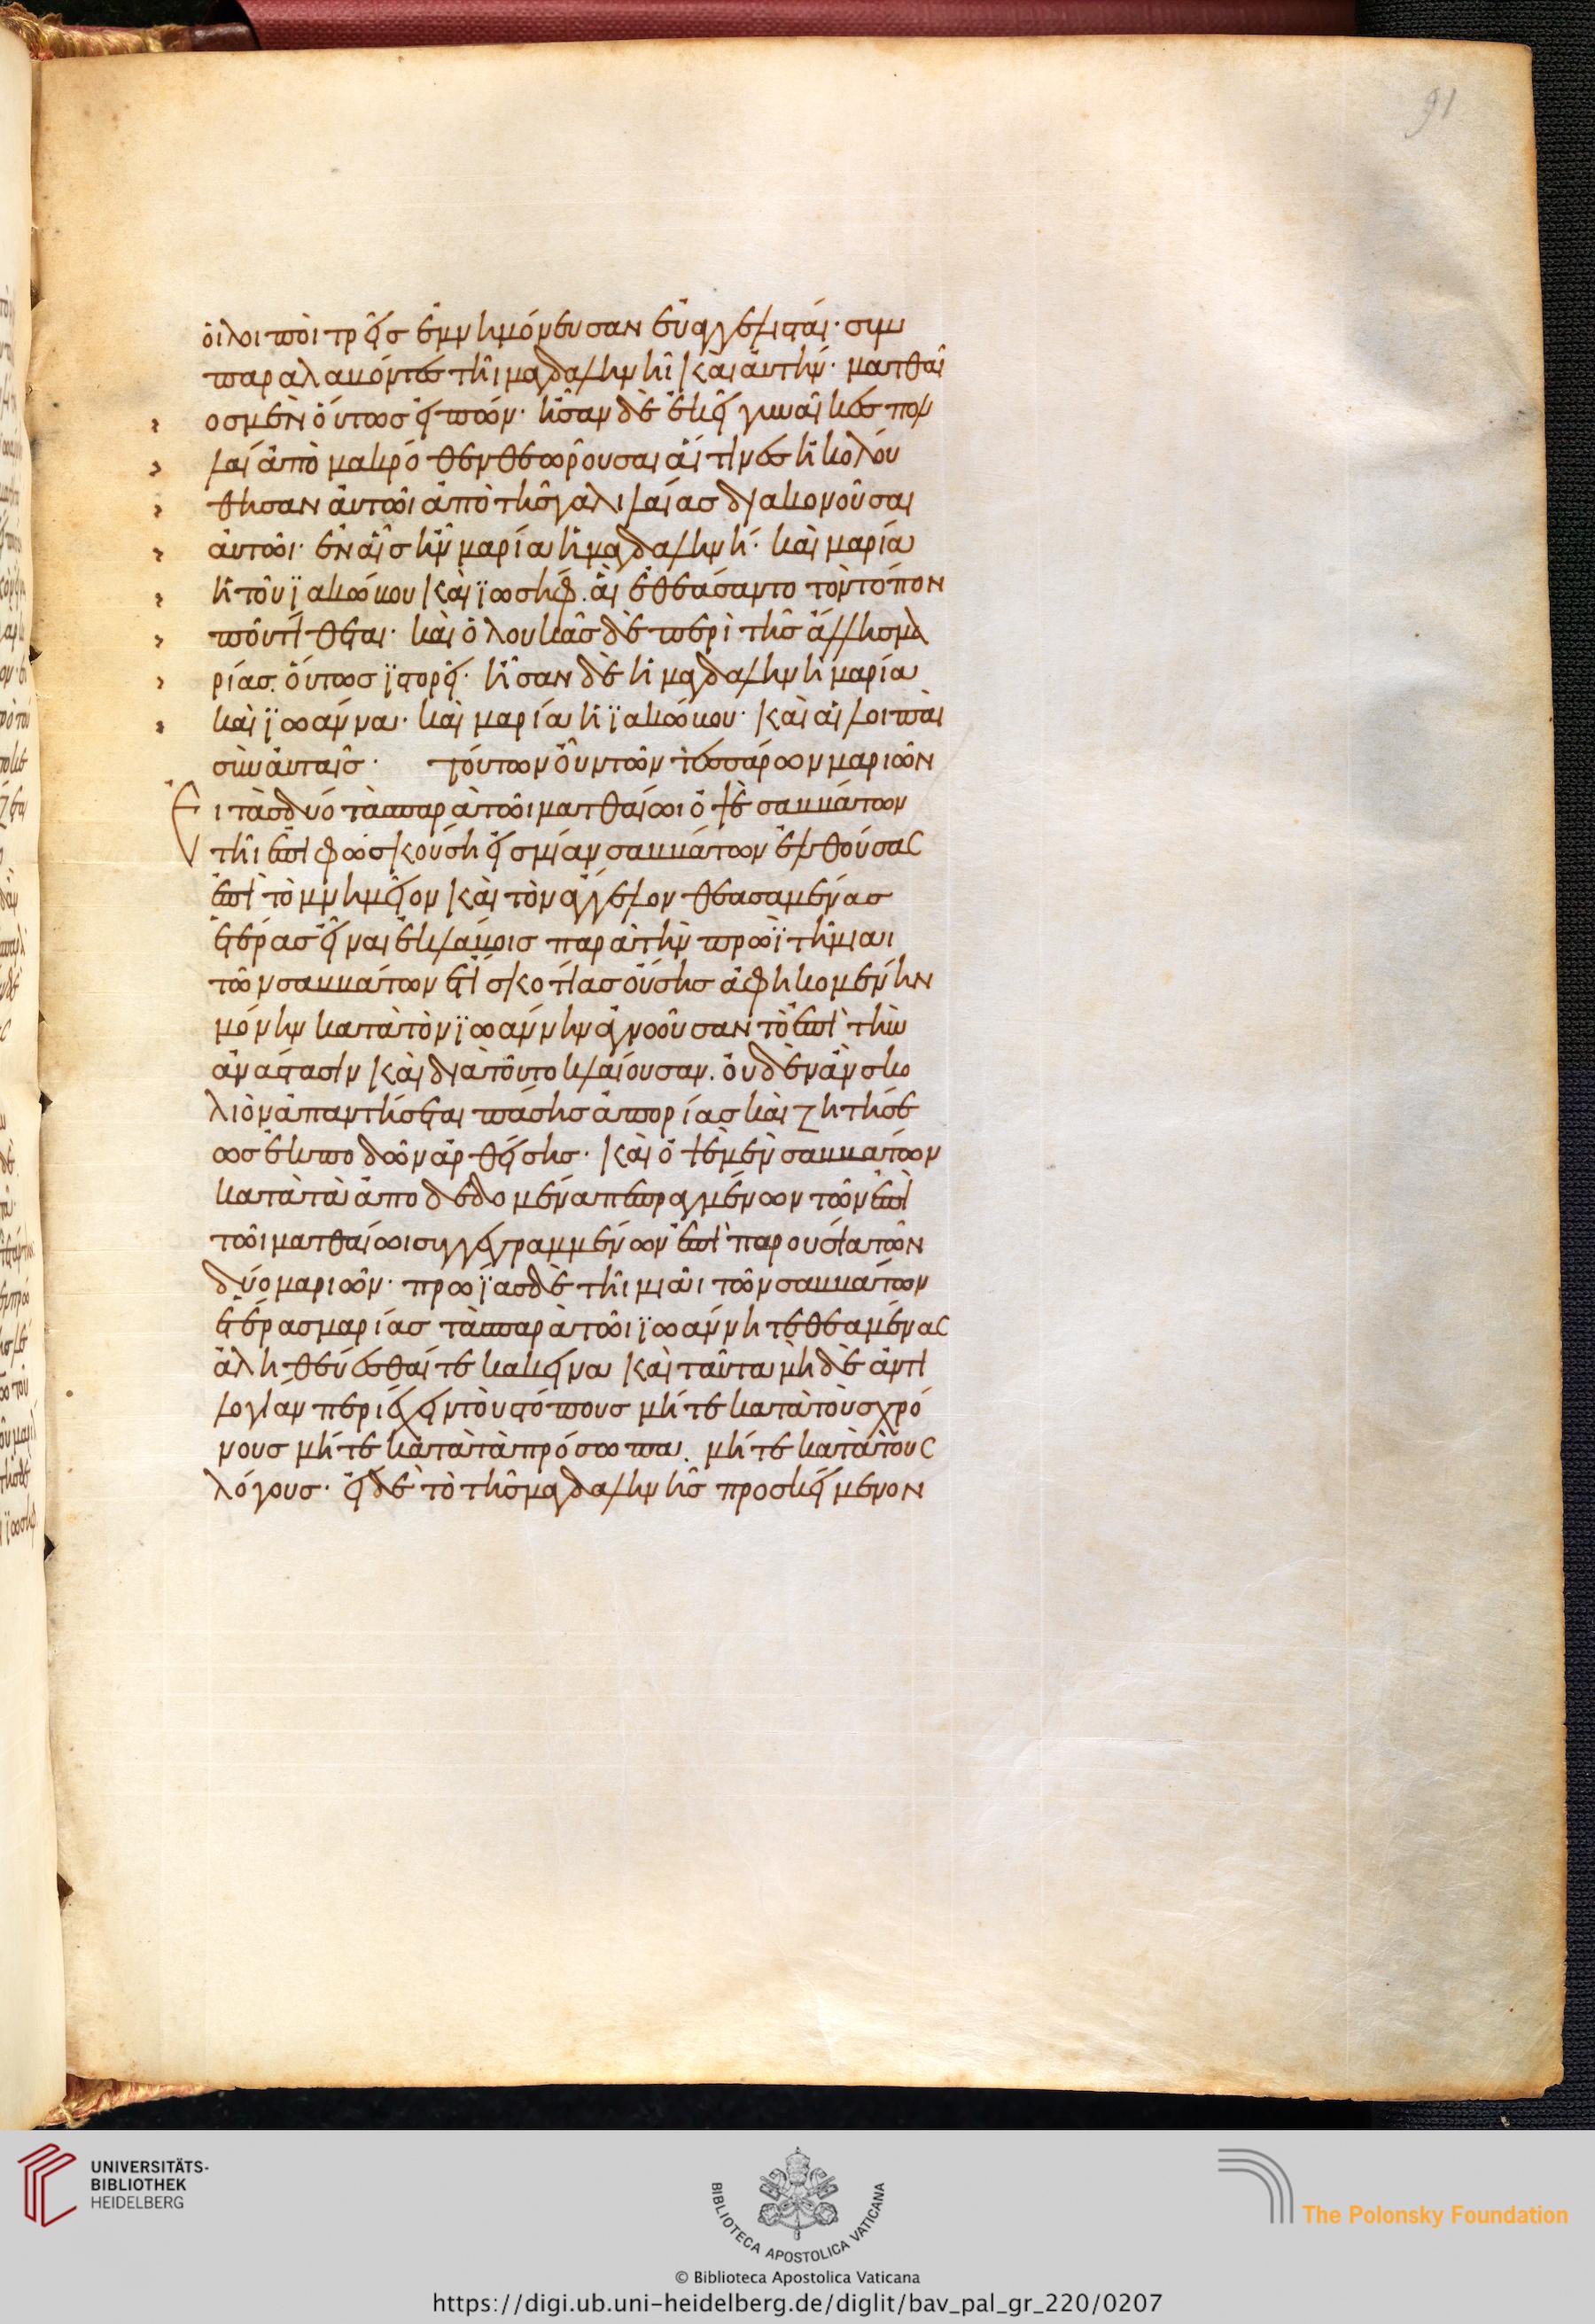 91
οἱ λοιποὶ τρεῖς ἐμνημόνευσαν εὐαγγελισταί· συμ
παραλαβόντες τῆι μαγδαληνῆι καὶ αὐτήν· ματθαῖ
ος μὲν οὕτως εἰπών· ἦσαν δὲ ἐκεῖ γυναῖκες πολ
λαὶ ἀπὸ μακρόθεν θεωροῦσαι αἵτινες ἠκολού
θησαν αὐτῶι ἀπὸ τῆς γαλιλαίας διακονοῦσαι
αὐτῶι· ἐν αἷς ἦν μαρία ἡ μαγδαληνή· καὶ μαρία
ἡ τοῦ ϊακώβου καὶ ϊωσήφ. αἳ ἐθεάσαντο τὸν τόπον
ποῦ τίθεται· καὶ ὁ λουκᾶς δὲ περὶ τῆς ἄλλης μα
ρίας. οὕτως ϊστορεῖ· ἦσαν δὲ ἡ μαγδαληνὴ μαρία
καὶ ϊωάννα· καὶ μαρία ἡ ϊακώβου· καὶ αἱ λοιπαὶ
σὺν αὐταῖς· τούτων οὖν τῶν τεσσάρων μαριῶν
Ει τὰς δύο τὰς παρὰ τῶι ματθαίωι ὀψὲ σαββάτων
τῆι ἐπιφωσκούσηι εἰς μίαν σαββάτων ἐλθούσας
ἐπὶ τὸ μνημεῖον καὶ τὸν ἄγγελον θεασαμένας
ἑτέρας εἶναι ἐκλάβοις παρὰ τὴν πρωῒ τῆι μιᾶι
τῶν σαββάτων ἔτι σκοτίας οὔσης ἀφηκομένην
μόνην κατὰ τὸν ϊωάννην ἀγνοοῦσαν τὸ ἐπὶ τὴν
ἀνάστασιν καὶ διὰ τοῦτο κλαίουσαν. οὐδὲν ἂν σκο
λιὸν ἀπαντήσεται πάσης ἀπορίας καὶ ζητήσε
ως ἐκποδῶν ἀρθείσης· καὶ ὀψὲ μὲν σαββάτων
κατὰ τὰ ἀποδεδομένα πεπραγμένων τῶν ἐπὶ
τῶι ματθαίωι συγγεγραμμένων ἐπὶ παρουσία τῶν
δύο μαριῶν· πρωΐας δὲ τῆι μιᾶι τῶν σαββάτων
ἑτέρας μαρίας τὰς παρὰ τῶι ϊωάννη τεθεαμένας
ἀληθεύεσθαί τε κακεῖνα καὶ ταῦτα μηδὲ ἀντι
λογίαν περιέχειν τοὺς τόπους μήτε κατὰ τοὺς χρό
νους μήτε κατὰ τὰ πρόσωπα. μήτε κατὰ τοὺς
λόγους· εἰ δὲ τὸ τῆς μαγδαληνῆς προσκείμενον
UNIVERSITÄTS-
BIBLIOTHEK
HEIDELBERG
BIBLIOTECA APOSTOLICA VATICANA
The Polonsky Foundation
© Biblioteca Apostolica Vaticana
https://digi.ub.uni-heidelberg.de/diglit/bav_pal_gr_220/0207